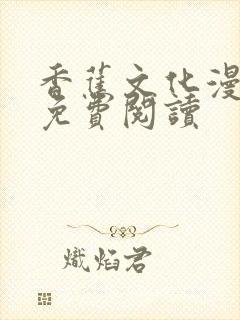 香蕉文化漫
免費閱讀
熾焰君